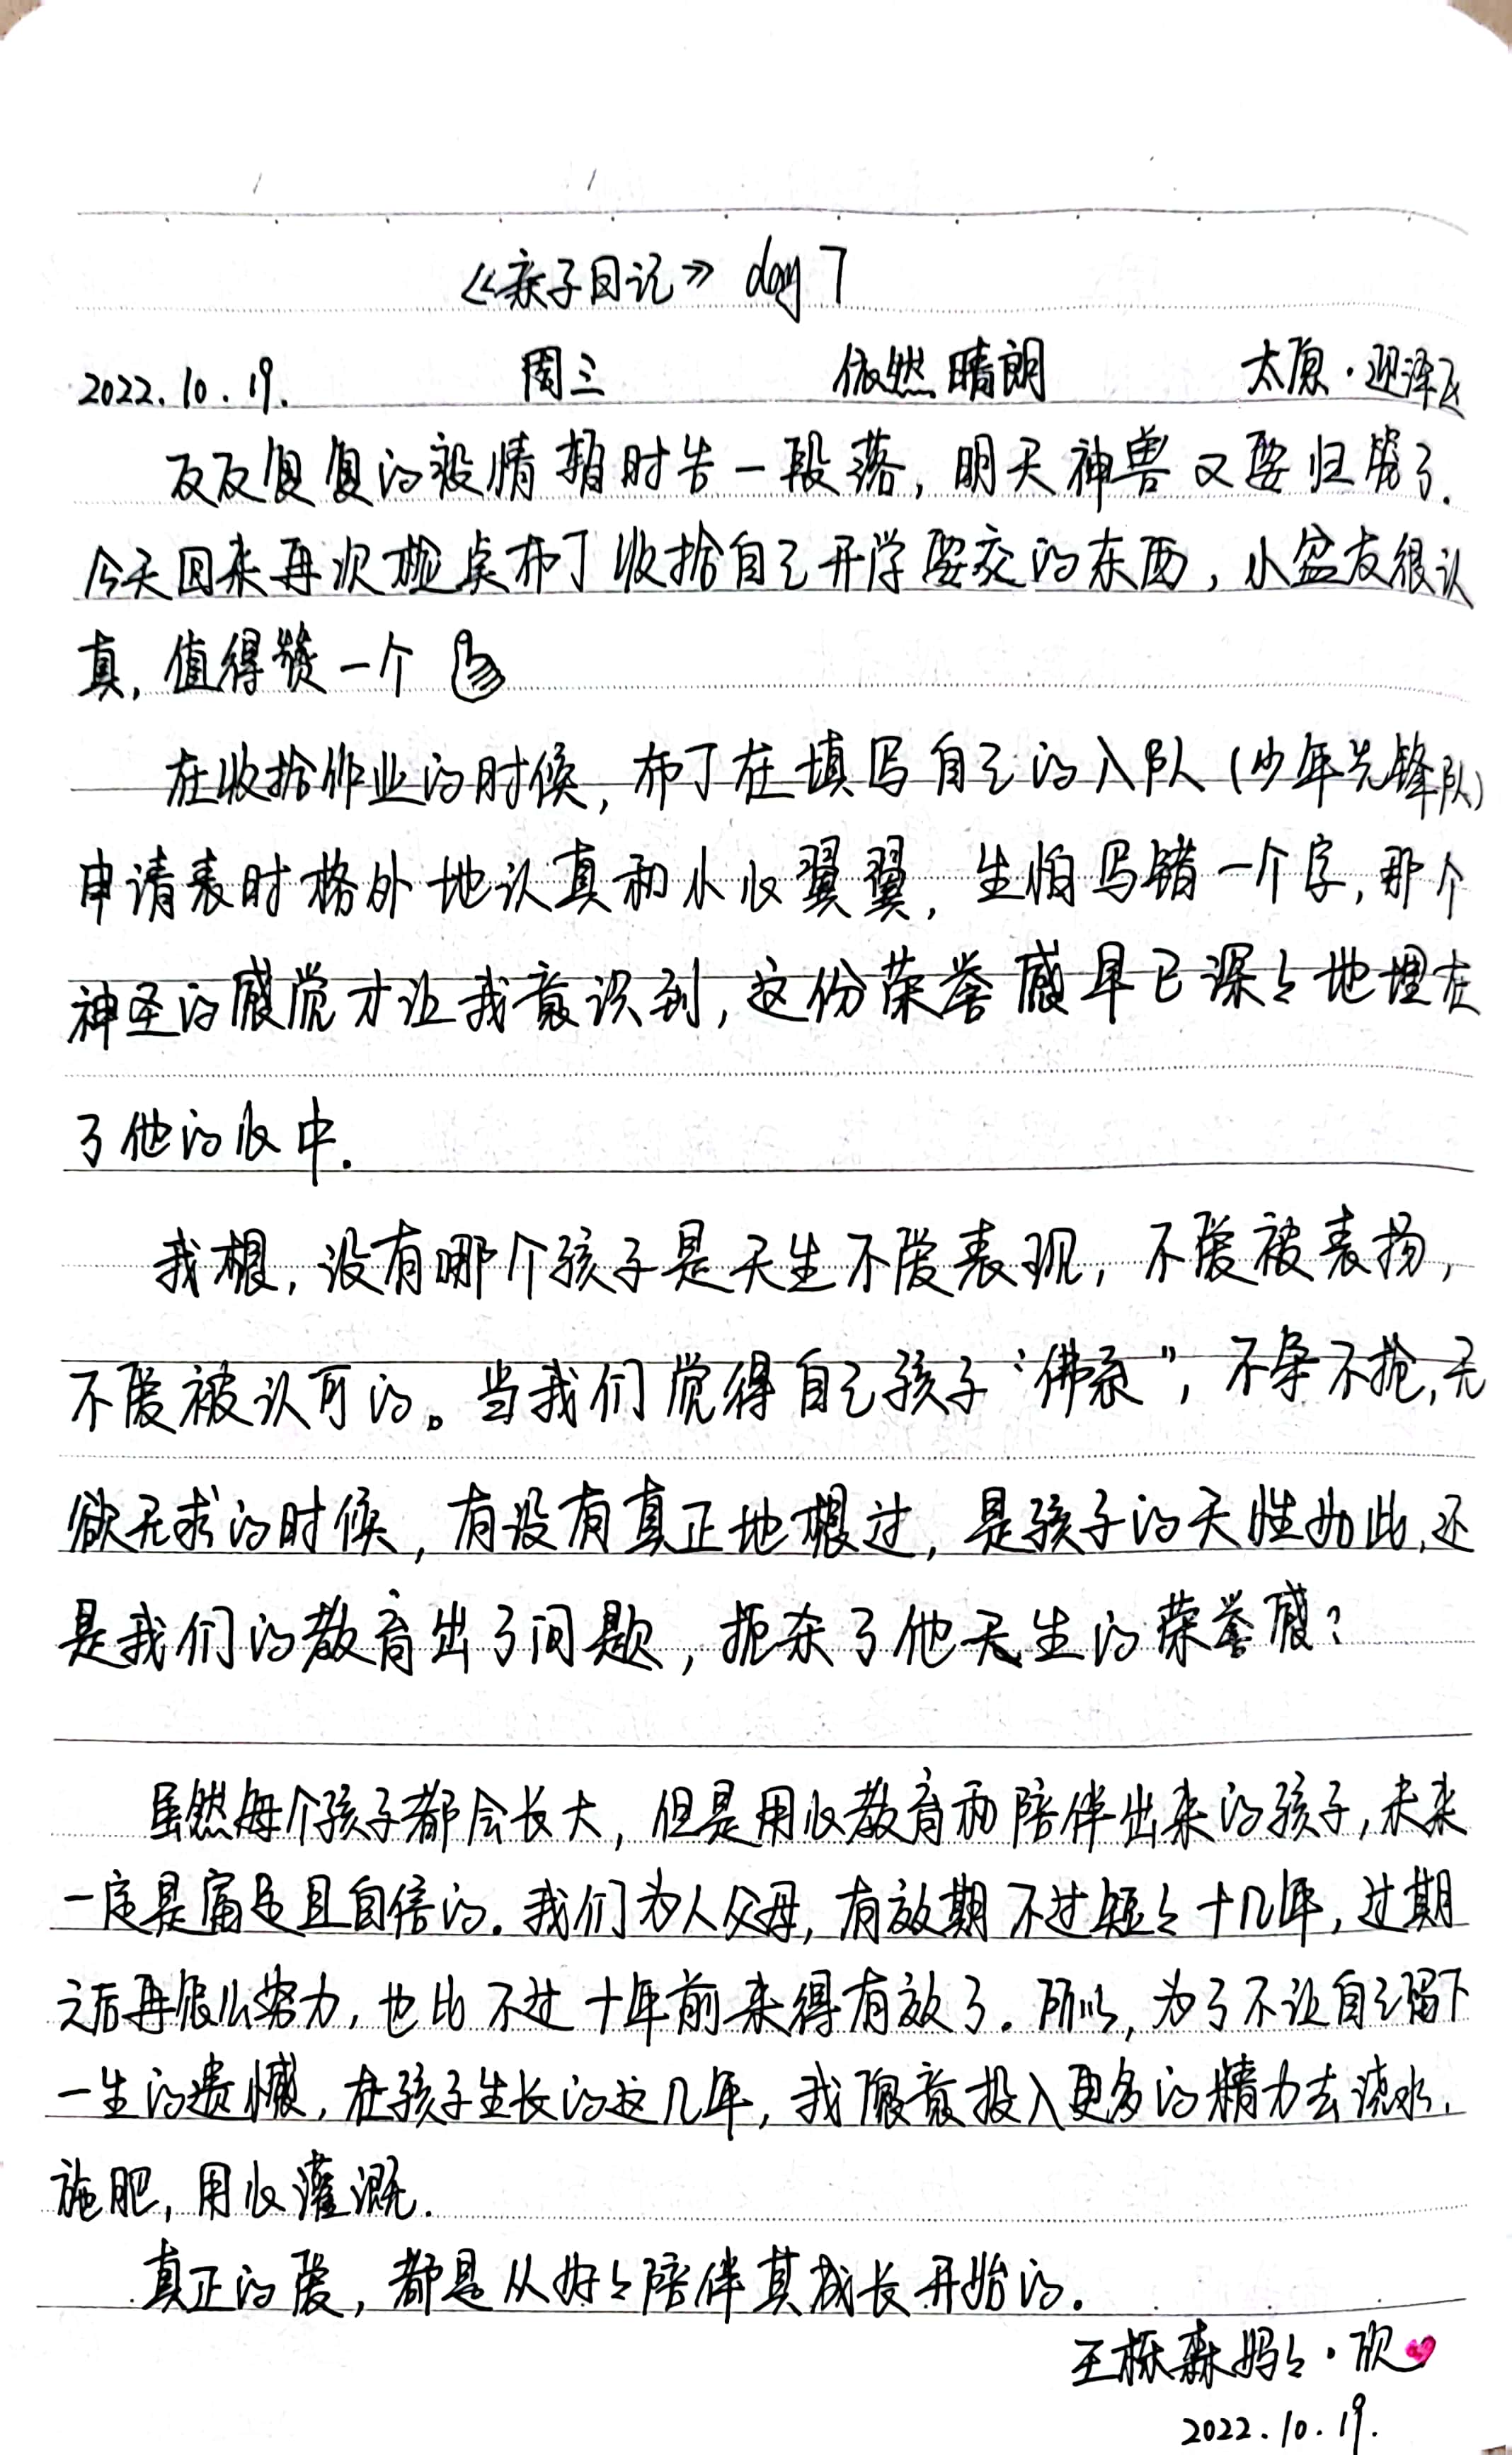 《亲子日记》 day 7
2022.10.19. 周三 依然晴朗 太原·迎泽区
反反复复的疫情暂时告一段落,明天神兽又要归笼了.
今天回来再次检点布丁收拾自己开学要交的东西,小盆友很认
真,值得赞一个
在收拾作业的时候,布丁在填写自己的入队(少年先锋队)
申请表时格外地认真和小心翼翼,生怕写错一个字,那个
神圣的感觉才让我意识到,这份荣誉感早已深々地埋在
了他的心中.
我想,没有哪个孩子是天生不爱表现,不爱被表扬,
不爱被认可的。当我们觉得自己孩子“佛系”,不争不抢,无
欲无求的时候,有没有真正地想过,是孩子的天性如此,还
是我们的教育出了问题,扼杀了他天生的荣誉感?
虽然每个孩子都会长大,但是用心教育和陪伴出来的孩子,未来
一定是富足且自信的.我们为人父母,有效期不过短々十几年,过期
之后再很么努力,也比不过十年前来得有效了.所以,为了不让自己留下
一生的遗憾,在孩子生长的这几年,我愿意投入更多的精力去浇水,
施肥,用心灌溉.
真正的爱,都是从好々陪伴其成长开始的.
王栎森妈々·欣
2022.10.19.